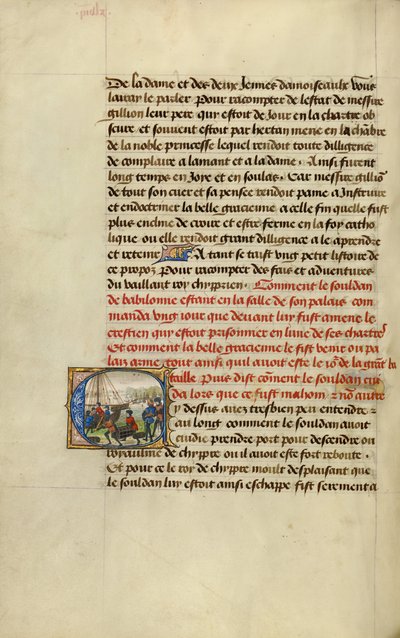 De la dame et des deux Jennes damoiseaulx vous
lairay le parler pour racompter de lestat de messire
gillion leur pere qui estoit de Jour en la chartre ob
scure et souvent estoit par hertan mene en la chãbre
de la noble princesse lequel rendoit toute dilligence
de complaire a lamant et a la dame. Ainsi furent
long temps en Joye et en soulas. Car messire gilliõ
de tout son cuer et sa pensee rendoit paine a Instruire
et endoctriner la belle gracienne a celle fin quelle fust
plus encline de croire et estre ferme en la foy catho
lique ou elle rendoit grant dilligence a le aprendre
et retenir A tant se taist ung petit listoire de
ce propoz pour racompter des fais et adventures
du vaillant roy chyprien. Comment le souldan
de babilonne estant en la salle de son palais com
manda ung iour que devant luy fust amene le
crestien qui estoit prisonnier en lune de ses chartres
Et comment la belle gracienne le fist venir ou pa
lais arme tout ainsi quil avoit este le io de la grant ba
taille puis dist cõment le souldan cui
da lors que ce fust mahom et nõ autre
Cy dessus avez tresbien peu entendre
au long comment le souldan avoit
cuidie prendre port pour descendre ou
royaulme de chyppre ou il avoit este fort reboute.
Et pour ce le roy de chyppre moult desplaisant que
le souldan luy estoit ainsi eschappe fist serement a